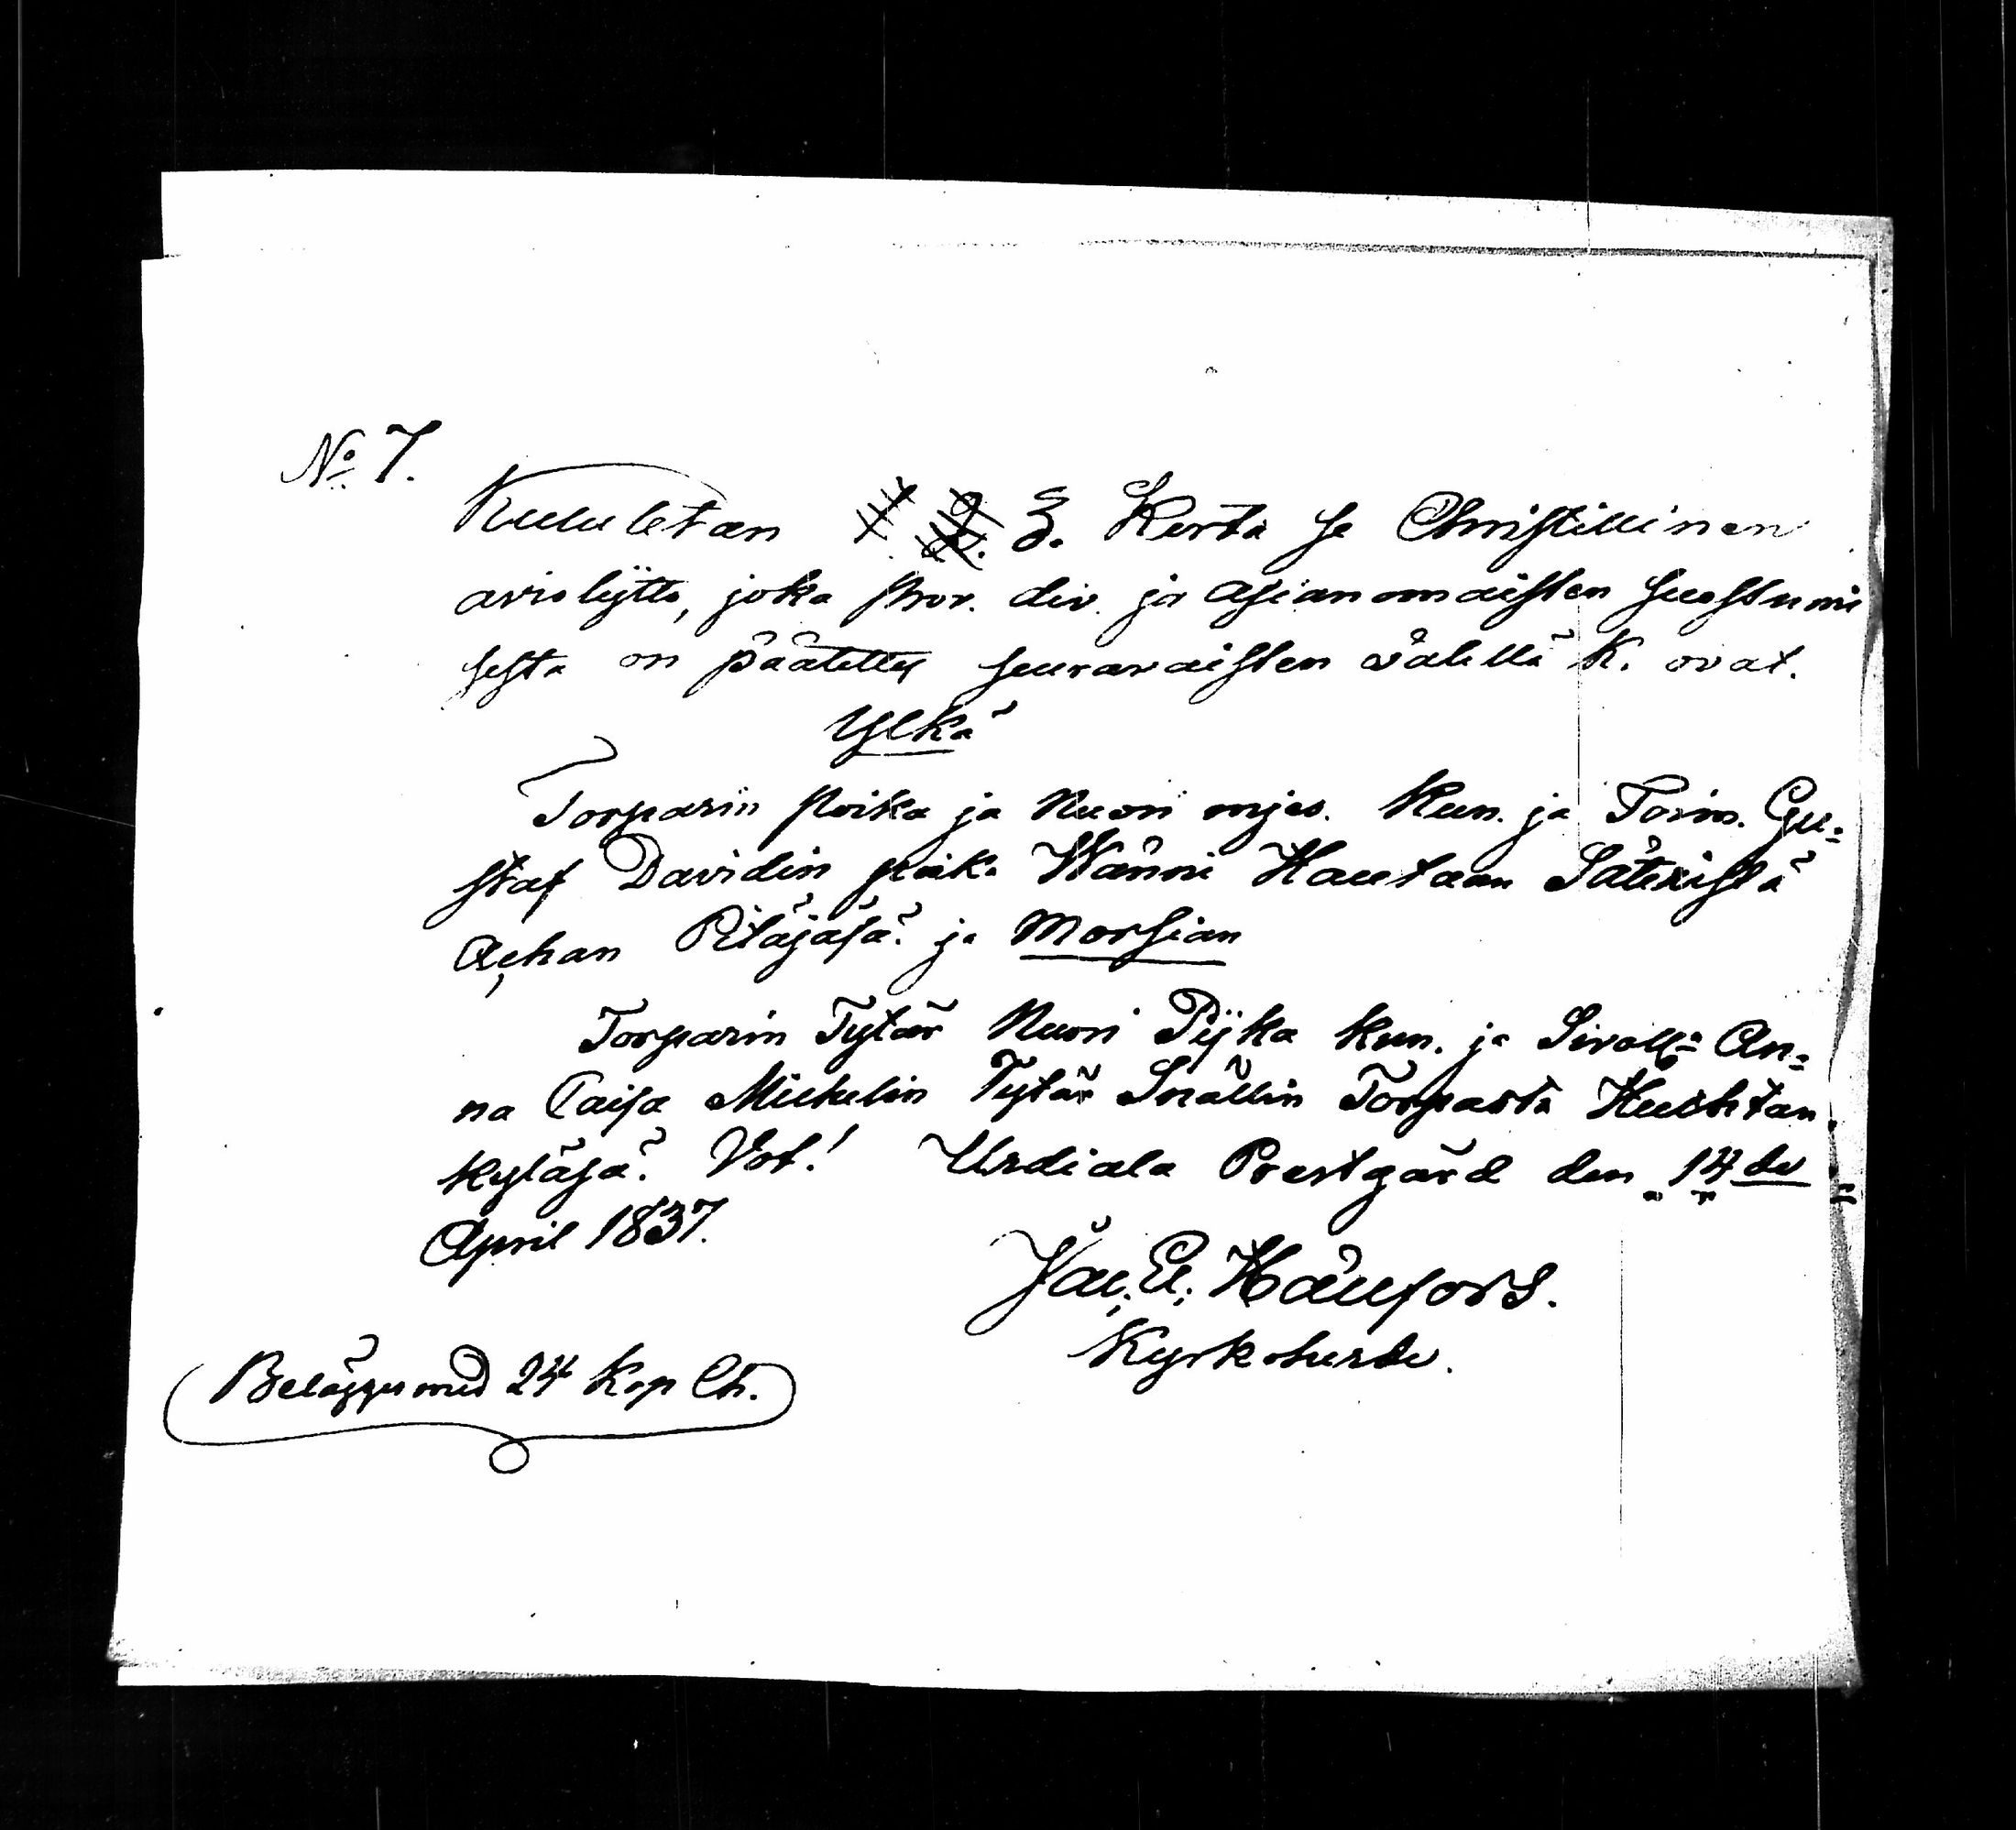 No 7.
Kuululetan 3. Kerta se Christillinen
avioliytto, joka prov. div. ja asianomaisten suostumi
sesta on päätetty seuravaisten välillä k. ovat.
Ylkä
Torparin poika ja Nuori mjes. Kun. ja Toim. Gu=
staf Davidin poika Wänni Hautaan Säteristä
Achan Pitäjäsä. ja Morsian
Torparin Tytär Nuori Pijka Kun. ja Sivollä An=
na Caisa Mickelin Tytär Snällin Torpasta Huchtan
kyläsä. Vot! Urdiala Prestgård den 14de
April 1837.
Jac. El. Hällfors.
Kyrkoherde.
Belägges med 24 Kop Ch.